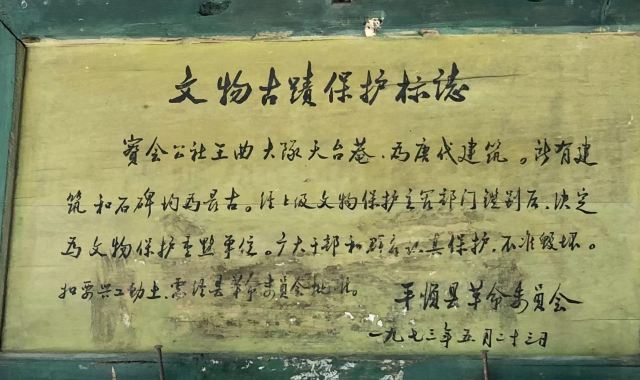 文物古蹟保护标誌
實会公社王曲大隊天台菴、为唐代建筑。所有建
筑和石碑均为最古。经上级文物保护主管部门鉴别后、决定
为文物保护重点单位。广大干部和群众认真保护、不准毁坏。
如要兴工动土、需经县革命委员会批准。
平顺县革命委员会
一九七三年五月二十三日